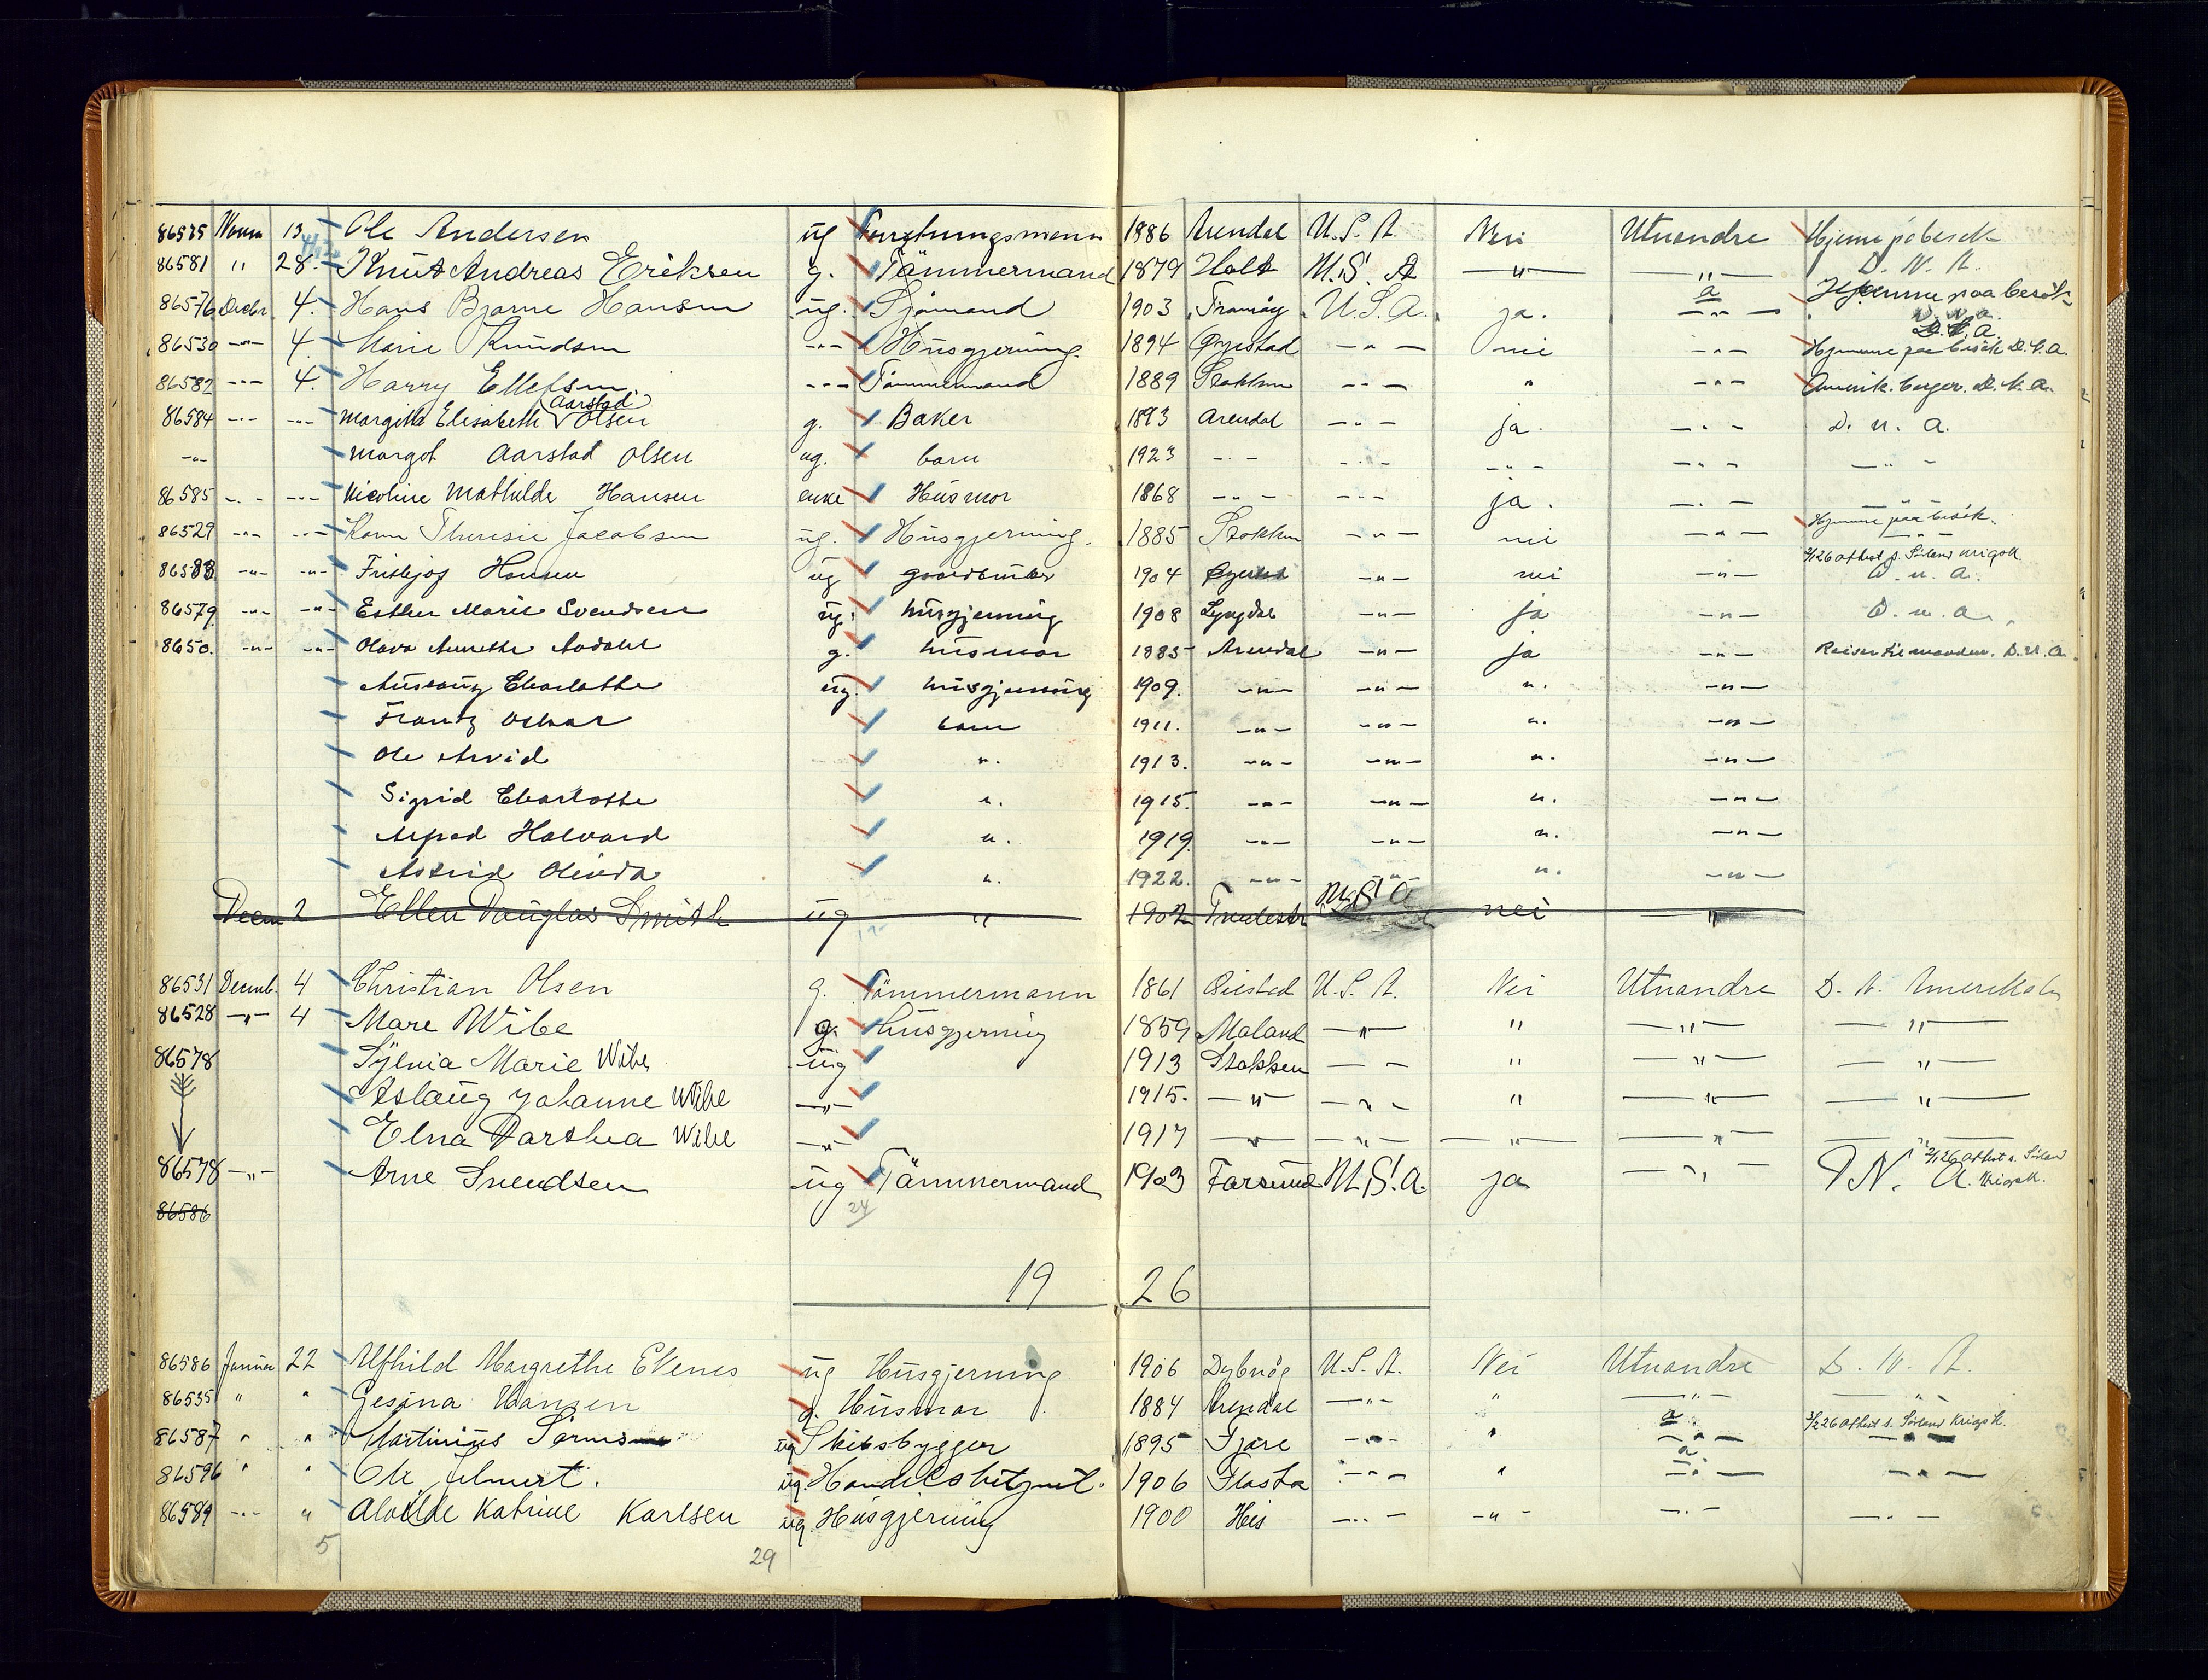 86575 Novm 13 Ole Andersen ug Forretningsmann 1886 Arendal U.S.A. Nei Utvandre Hjeme på besøk
86581 " 28. Knut Andreas Eriksen g. Tømmermand 1879 Holt U.S.A — " — — " — D.N.A.
86576 Decbr 4. Hans Bjarne Hansen ug. Sjømand 1903 Tromøy U.S.A. ja. — " — Hjemme paa besøk
D.N.A.
86530 - " - 4. Marie Knudsen - " - Husgjerning. 1894 Øyestad - " - nei - " - Hjemme paa besøk D.N.A.
86582 - " - 4. Harry Ellefsen. - " - Tømmermand 1889 Stokken - " - " - " - Amerik. borger. D.N.A.
86584 - " - - " - Margita Elisabeth Aarstad Olsen g. Baker 1893 Arendal - " - ja. - " - D.N.A.
- " - Margot Aarstad Olsen ug. barn 1923 - " - - " - - " - - " - - " -
86585 - " - - " - Nicoline Mathilde Hansen enke Husmor 1868 - " - - " - ja. - " -
86529 - " - - " - Karen Theresie Jacobsen ug. Husgjerning. 1885 Stokken - " - nei - " - Hjemme paa besøk.
86583 - " - - " - Frithjof Hansen ug gaardbruker 1904 Øyestad - " - nei - " - 2/1 26 Attest s. Sørland Krigsk. D.N.A.
86579 - " - - " - Esther Marie Svendsen ug. husgjerning 1908 Lyngdal - " - ja - " - D.N.A.
8650. - " - - " - Olava Annethe Aadahl g. husmor 1885 Arendal - " - ja - " - Reiser til manden. D.N.A.
Charlotte ug. husgjerning 1909. - " - - " - ". - " -
Frantz Oskar barn 1911. - " - - " - ". - " -
Ole Arvid ". 1913. - " - - " - ". - " -
Sigrid Charlotte ". 1915. - " - - " - ". - " -
Alfred Halvard ". 1919. - " - - " - ". - " -
Astrid Olinda ". 1922. - " - - " - ". - " -
Decm 2 Ellen Douglas Smith ug " 1902 U.S.A nei "
86531 Decmb. 4 Christian Olsen g. Tømmermann 1861 Øiestad U.S.A. Nei Utvandre D.N. Amerikal
86528 - " - 4 Mare Wibe g. Husgjerning 1859 Moland - " - " - " - - " -
86578 Sylvia Marie Wibe ug 1913 Stokken - - " - " - - " -
Aslaug Johanne Wibe - " - 1915. - " - - " - " - " - - " -
Elna Dorthea Wibe - " - 1917 - " - - " - - " - - " - - " -
86578 - " - Arne Svendsen ug Tømmermand 1903 Farsund U.S.A. ja - " - D.N.A. 2/1 26 Attest s. Sørland Krigsk.
86586 24
19 26
86586 Januar 22 Alfhild Margrethe Ekenes ug Husgjerning 1906 Dybvåg U.S.A. Nei Utvandre D.N.A.
86535 " " Gesina Hansen g. Husmor 1884 Arendal - " - " - " - - " -
86587 " " Martinius Sørns ug Skibsbygger 1895 Fjære - " - " - " - 3/2 26 Attest s. Sørland Krigsk. - " -
86596 " " Ole Jelmert. ug. Handelsbetjent. 1906 Flosta - " - " - " - - " -
86589 - " - " Alvilde Katrine Karlsen ug. Husgjerning 1900 His - " - - " - - " - - " -
5 29